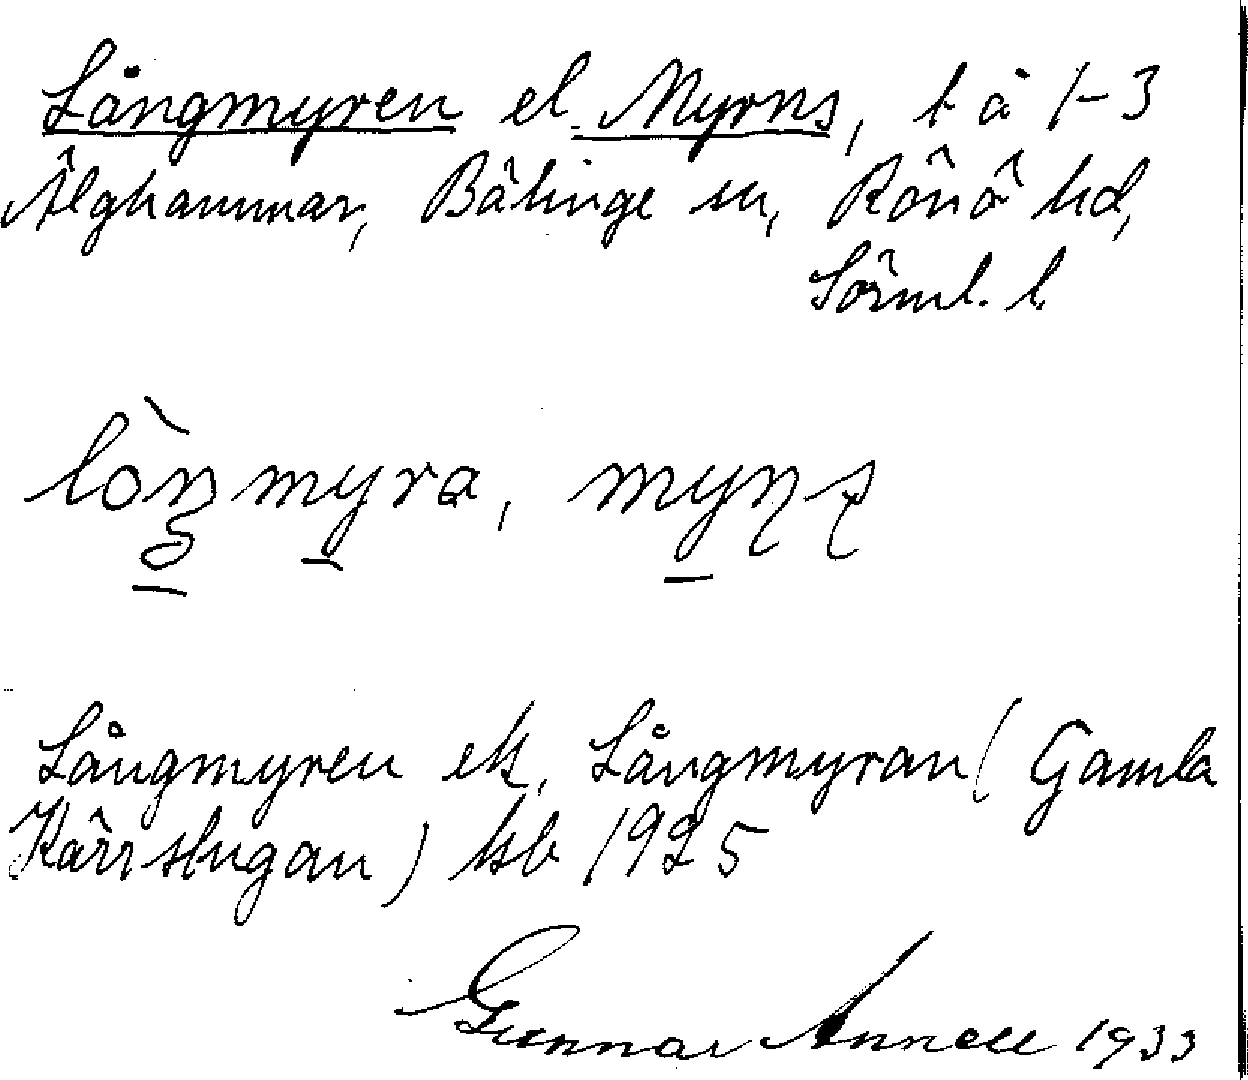 Långmyren el. Myrns, t å 1-3
Älghammar, Bälinge sn, Rönö hd,
Sörml. l.
lòŋmyra, myɳʂ
Långmyren ek. Långmyran (Gamla
Kärrstugan) kb 1925
Gunnar Annell 1933